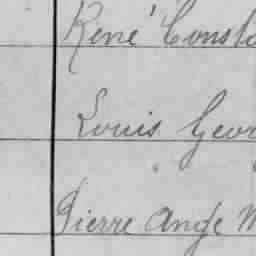 René Consta
Louis Geor
Pierre Ange M